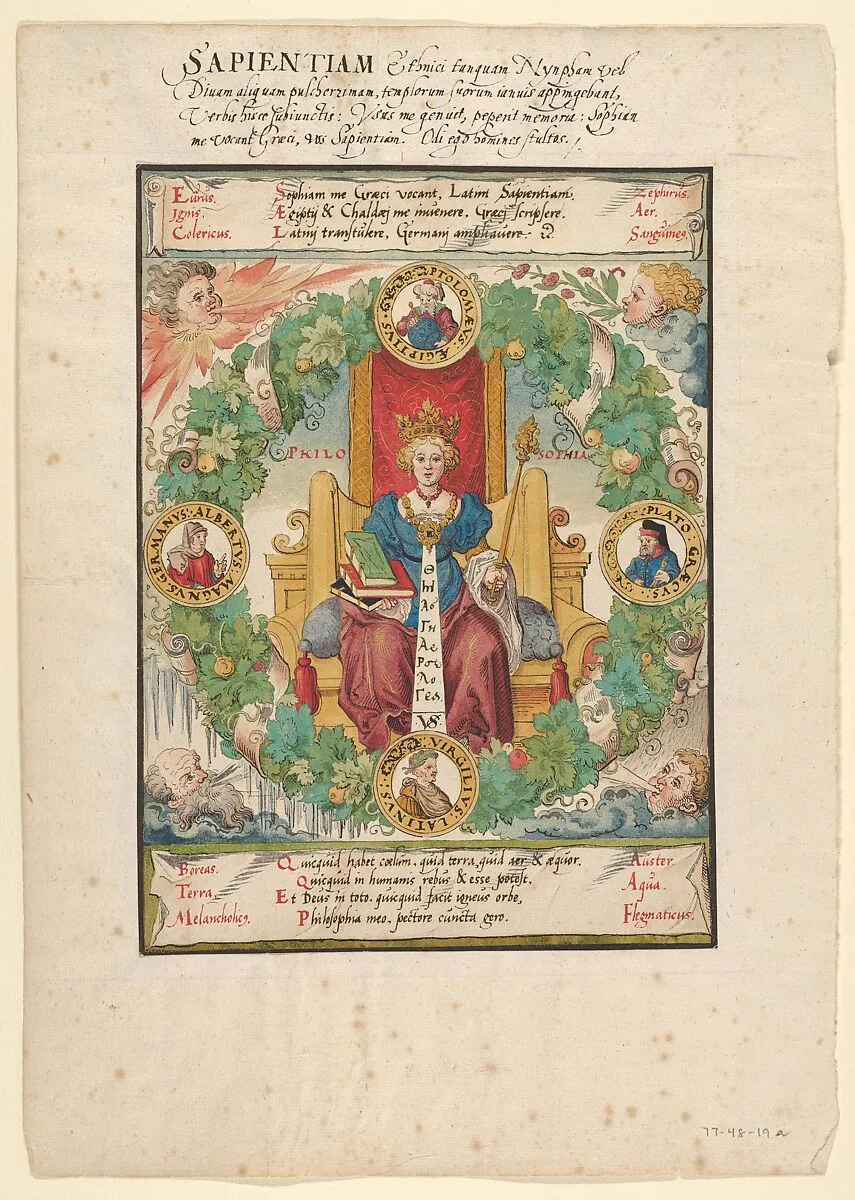 SAPIENTIAM Ethnici tanquam Nynpham vel
Divam aliquam pulcherrimam, templorum suorum ianuis appingebant,
Verbis hisce subiunctis: Vsus me genuit, peperit memoria: Sophian
me vocant Græci, vos Sapientiam. Odi ego homines stultos.
Eurus.
Ignis.
Colericus.
Sophiam me Græci vocant, Latini Sapientiam,
Ægiptij & Chaldæj me invenere, Græcj scripsere.
Latinj transtulere, Germanj ampliavere.
Zephirus.
Aer.
Sanguine9.
PTOLOMÆVS ÆGIPTIVS
PHILO SOPHIA
ALBERTVS MAGNVS GERMANVS
PLATO GRÆCVS
Θ
Γη
Αε
Ρσε
Λο
Γεα
V8
VIRGILIVS LATINVS
Boreas.
Terra.
Melancholic9.
Quicquid habet coelum, quid terra, quid aer & æquor.
Quicquid in humanis rebus & esse potest.
Et Deus in toto, quicquid facit igneus orbe,
Philosophia meo, pectore cuncta gero.
Auster.
Aqua.
Flegmaticus.
77-48-19a